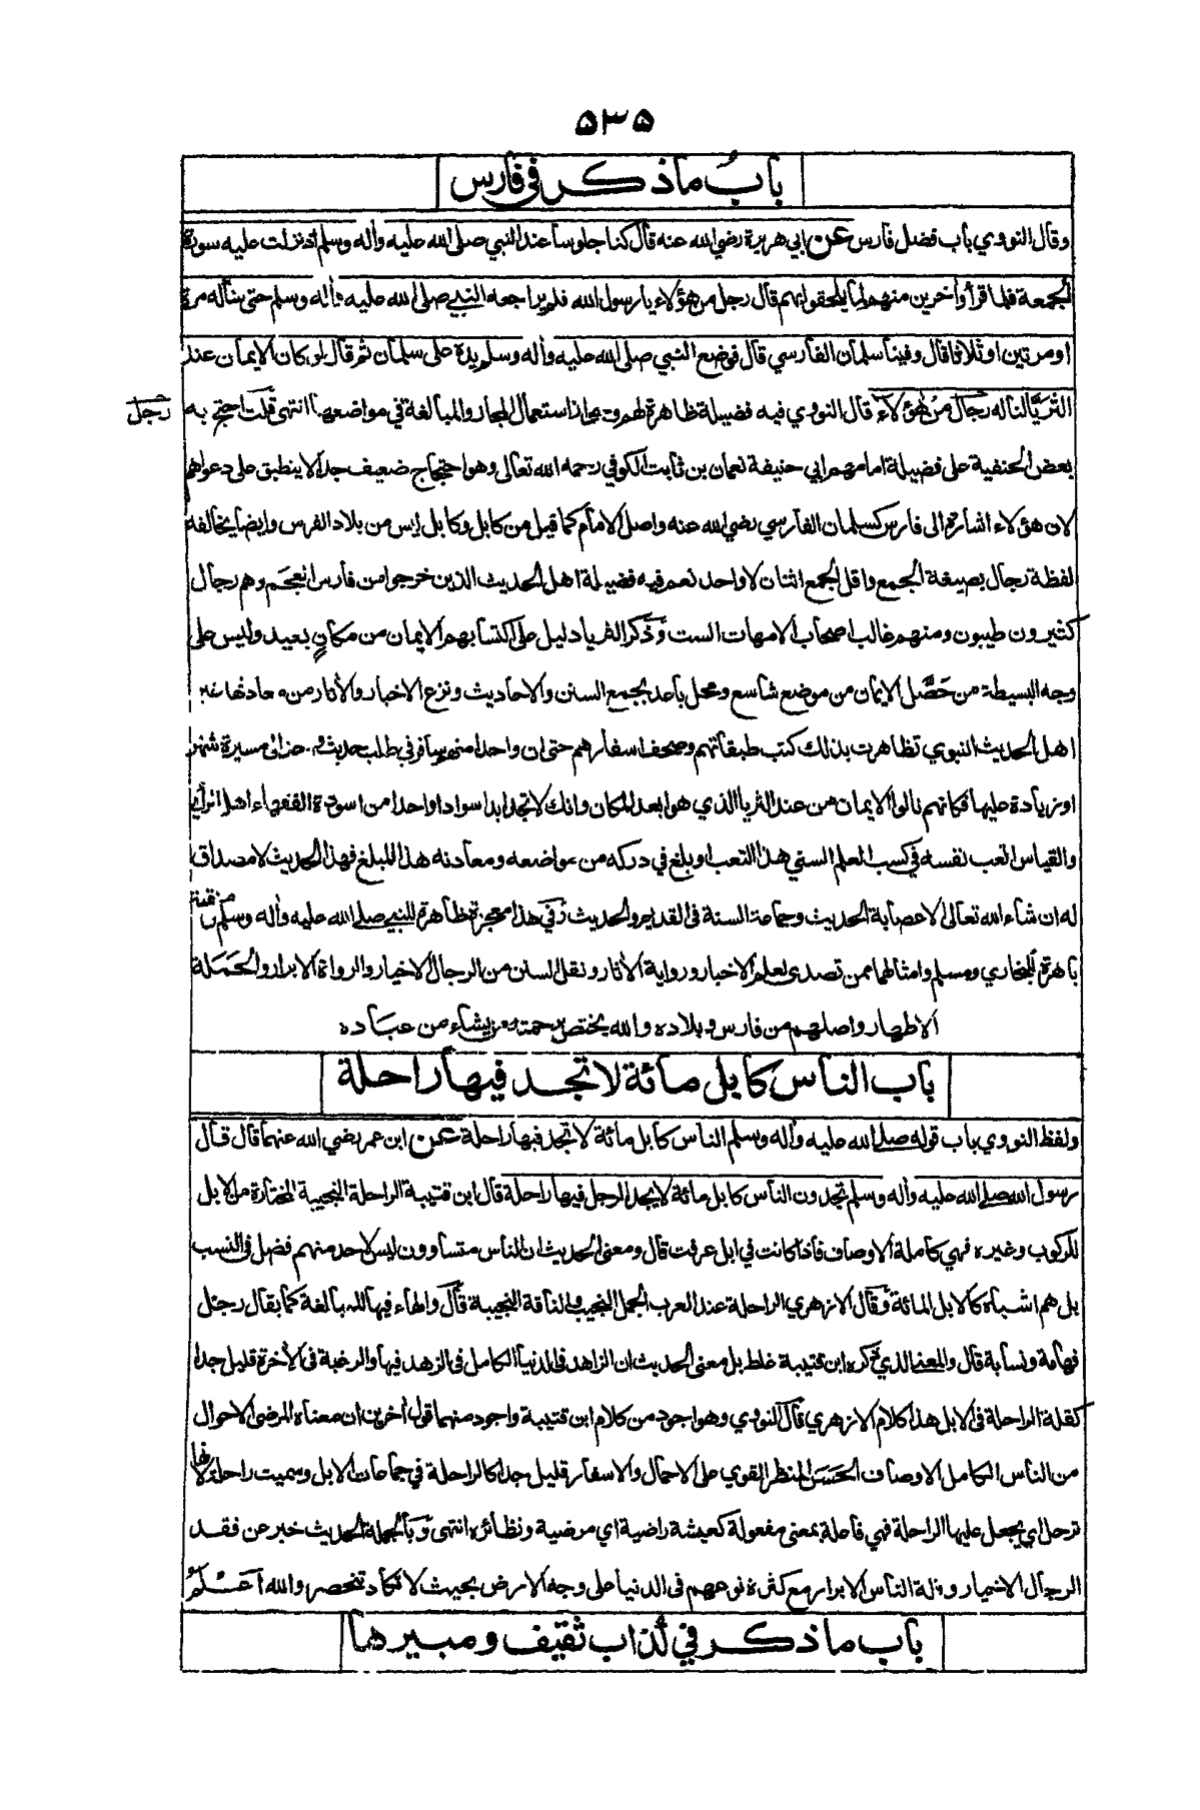 ۵۳۵
باب ما ذكر في فارس
وقال النووي باب فضل فارس عن ابي هريرة رضي الله عنه قال كنا جلوسا عند النبي صلى الله عليه واله وسلم اذ نزلت عليه سورة
الجمعة فلما قرأ واخرين منهم لما يلحقوا بهم قال رجل من هؤلاء يا رسول الله فلم يراجعه النبي صلى الله عليه واله وسلم حتى سأله مرة
او مرتين او ثلاثا قال وفينا سلمان الفارسي قال فوضع النبي صلى الله عليه واله وسلم يده على سلمان ثم قال لو كان الايمان عند
الثريا لناله رجال من هؤلاء قال النووي فيه فضيلة ظاهرة لهم وجواز استعمال المجاز والمبالغة في مواضعها انتهى قلت احتج به
رجل
بعض الحنفية على فضيلة امامهم ابي حنيفة نعمان بن ثابت الكوفي رحمه الله تعالى وهو احتجاج ضعيف جدا لا ينطبق على دعواهم
لان هؤلاء اشارة الى فارس كسلمان الفارسي رضي الله عنه واصل الامام كما قيل من كابل وكابل ليس من بلاد الفرس وايضا يخالفه
لفظة رجال بصيغة الجمع واقل الجمع اثنان لا واحد نعم فيه فضيلة اهل الحديث الذين خرجوا من فارس العجم وهم رجال
كثيرون طيبون ومنهم غالب اصحاب الامهات الست وذكر الثريا دليل على اكتسابهم الايمان من مكان بعيد وليس على
وجه البسيطة من حصل الايمان من موضع شاسع ومحل باعد بجمع السنن والاحاديث ونزع الاخبار والاثار من معادنها غير
اهل الحديث النبوي تظاهرت بذلك كتب طبقاتهم وصحف اسفارهم حتى ان واحدا منهم سافر في طلب حديث واحد الى مسيرة شهر
او زيادة عليها فكانهم نالوا الايمان من عند الثريا الذي هو ابعد المكان وانك لا تجد ابدا سوادا واحدا من اسودة الفقهاء اهل الرأي
والقياس اتعب نفسه في كسب العلم السني هذا التعب او بلغ في دركه من مواضعه ومعادنه هذا المبلغ فهذا الحديث لا مصداق
له ان شاء الله تعالى الا عصابة الحديث وجماعة السنة في القديم والحديث وفي هذا معجزة ظاهرة للنبي صلى الله عليه واله وسلم ومنقبة
باهرة للبخاري ومسلم وامثالهما ممن تصدى لعلم الاخبار ورواية الاثار ونقل السنن من الرجال الاخيار والرواة الابرار والحملة
الاطهار واصلهم من فارس وبلاده والله يختص برحمته من يشاء من عباده
باب الناس كابل مائة لا تجد فيها راحلة
ولفظ النووي باب قوله صلى الله عليه واله وسلم الناس كابل مائة لا تجد فيها راحلة عن ابن عمر رضي الله عنهما قال قال
رسول الله صلى الله عليه واله وسلم تجدون الناس كابل مائة لا يجد الرجل فيها راحلة قال ابن قتيبة الراحلة النجيبة المختارة من الابل
للركوب وغيره فهي كاملة الاوصاف فاذا كانت في ابل عرفت قال ومعنى الحديث ان الناس متساوون ليس لاحد منهم فضل في النسب
بل هم اشباه كالابل المائة وقال الازهري الراحلة عند العرب الجمل النجيب والناقة النجيبة قال والهاء فيها للمبالغة كما يقال رجل
فهامة ونسابة قال والمعنى الذي ذكره ابن قتيبة غلط بل معنى الحديث ان الزاهد في الدنيا الكامل في الزهد فيها والرغبة في الاخرة قليل جدا
كقلة الراحلة في الابل هذا كلام الازهري قال النووي وهو اجود من كلام ابن قتيبة واجود منهما قول اخرين ان معناه المرضي الاحوال
من الناس الكامل الاوصاف الحسن المنظر القوي على الاحمال والاسفار قليل جدا كالراحلة في جماعات الابل وسميت راحلة لانها
ترحل اي يجعل عليها الراحلة فهي فاعلة بمعنى مفعولة كعيشة راضية اي مرضية ونظائره انتهى وبالجملة الحديث خبر عن فقد
الرجال الاخيار وقلة الناس الابرار مع كثرة نوعهم في الدنيا على وجه الارض بحيث لا تكاد تنحصر والله اعلم
باب ما ذكر في كذاب ثقيف ومبيرها